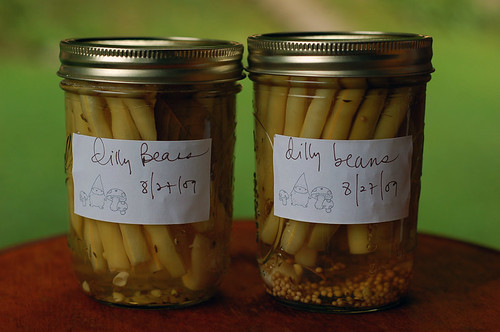 Dilly Beans
8/27/09
dilly beans
8/27/09